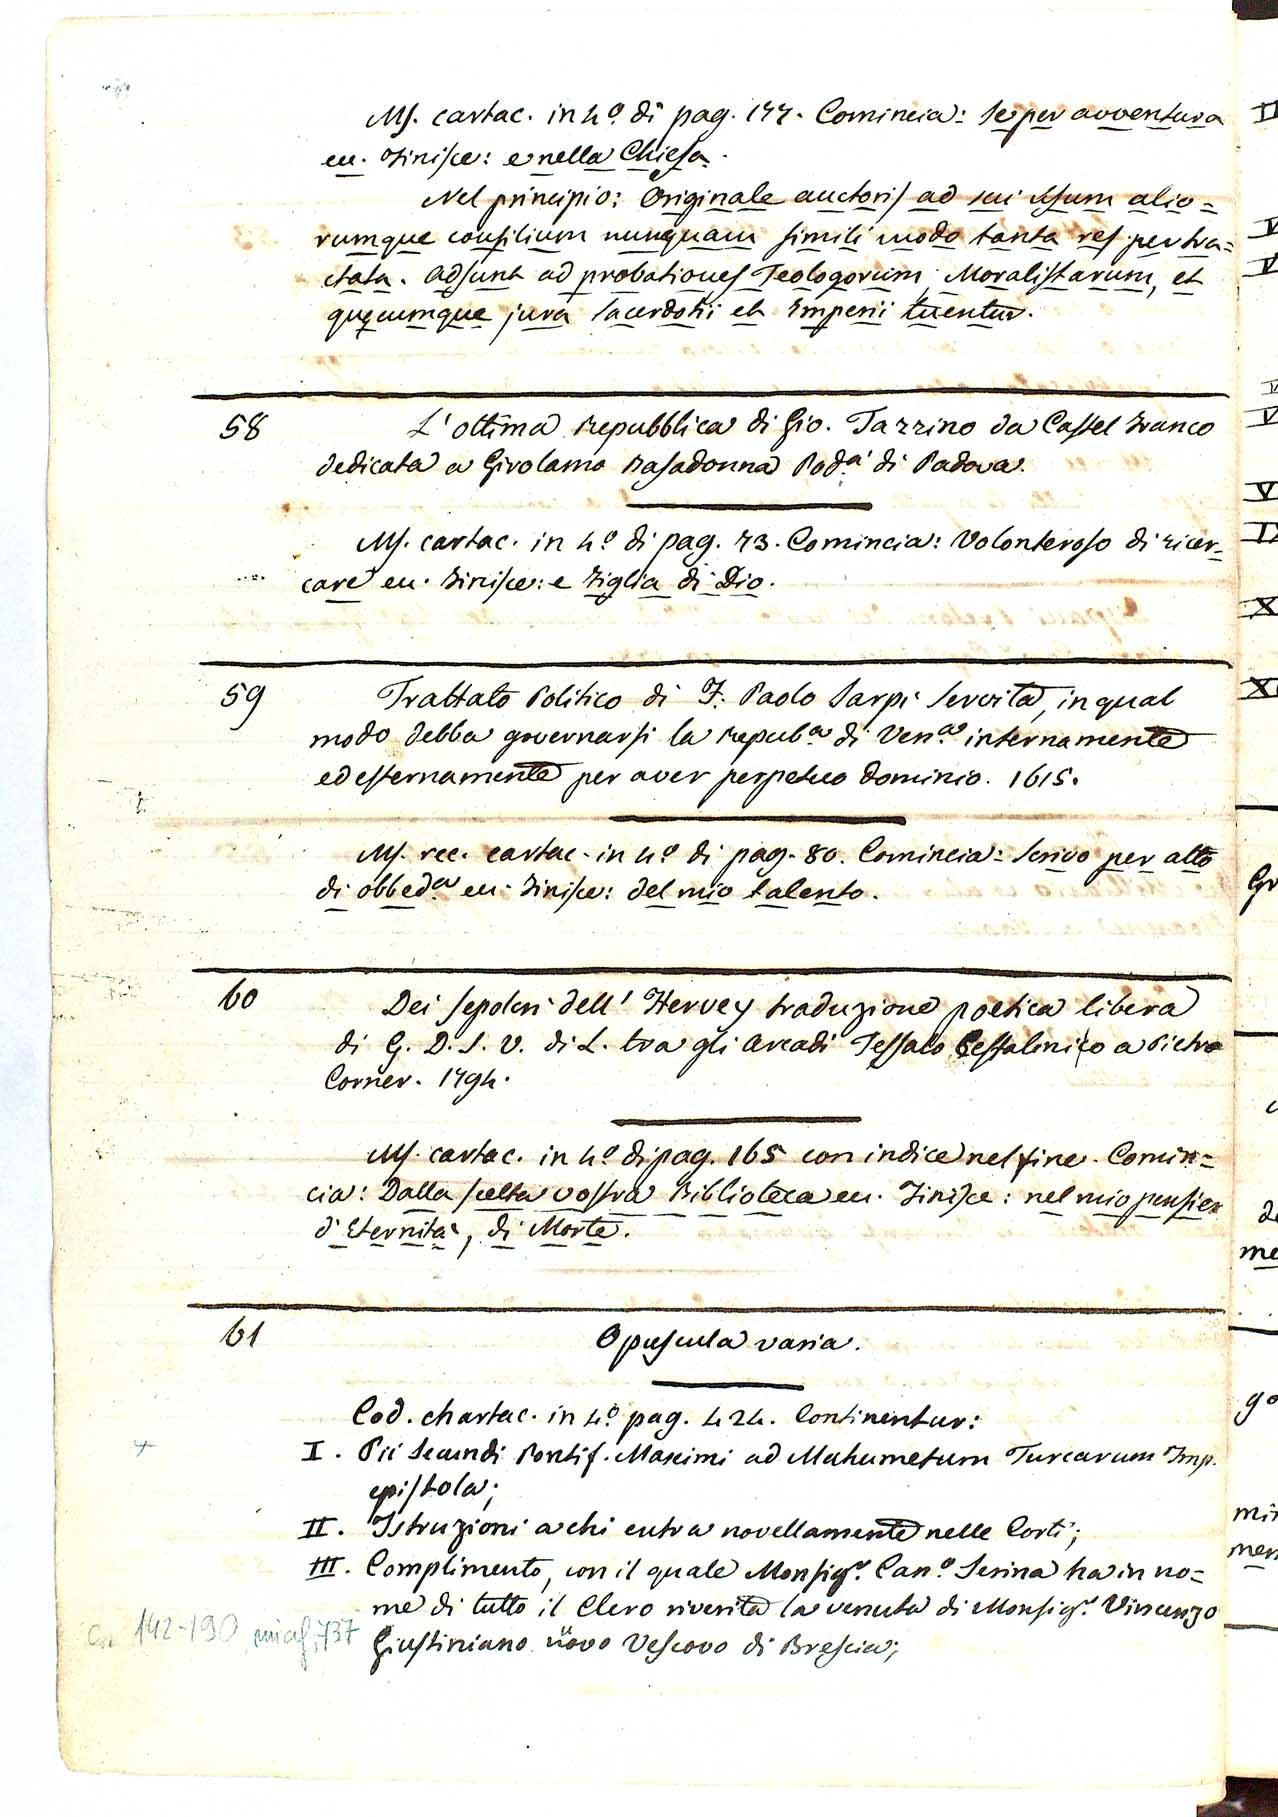 Ms. cartac. in 4º. di pag. 177. Comincia: Se per avventura
ec. Finisce: e nella Chiesa.
Nel principio: Originale auctoris ad sui usum alio=
rumque consilium nunquam simili modo tanta res pertra=
ctata. Adsunt ad probationes Teologorum, Moralistarum, et
quęcumque jura Sacerdotii et Imperii tuentur.
58 L'ottima Repubblica di Gio. Tazzino da Castel Franco
dedicata a Girolamo Basadonna Pod.à di Padova.
Ms. cartac. in 4º di pag. 73. Comincia: Volonteroso di ricer=
care ec. Finisce: e Figlia di Dio.
59 Trattato Politico di F. Paolo Sarpi Servita, in qual
modo debba governarsi la Repub.a di Ven.a internamente
ed esternamente per aver perpetuo dominio. 1615.
Ms. rec. cartac. in 4º di pag. 80. Comincia: Scrivo per atto
di obbed.a ec. Finisce: del mio talento.
60 Dei Sepolcri dell' Hervey traduzione poetica libera
di G. D. S. V. di L. tra gli Arcadi Tessalo Cessalinico a Pietro
Corner. 1794.
Ms. cartac. in 4º di pag. 165 con indice nel fine. Comin=
cia: Dalla scelta vostra Biblioteca ec. Finisce: nel mio pensier
d'Eternità, di Morte.
61 Opuscula varia.
Cod. chartac. in 4º. pag. 424. Continentur:
I. Pii Secundi Pontif. Maximi ad Mahumetum Turcarum Imp.
epistola;
II. Istruzioni a chi entra novellamente nelle Corti;
III. Complimento, con il quale Monsig.r Can.o Serina ha in no=
me di tutto il Clero riverita la venuta di Monsig.r Vincenzo
Giustiniano nuovo Vescovo di Brescia;
142-190 737